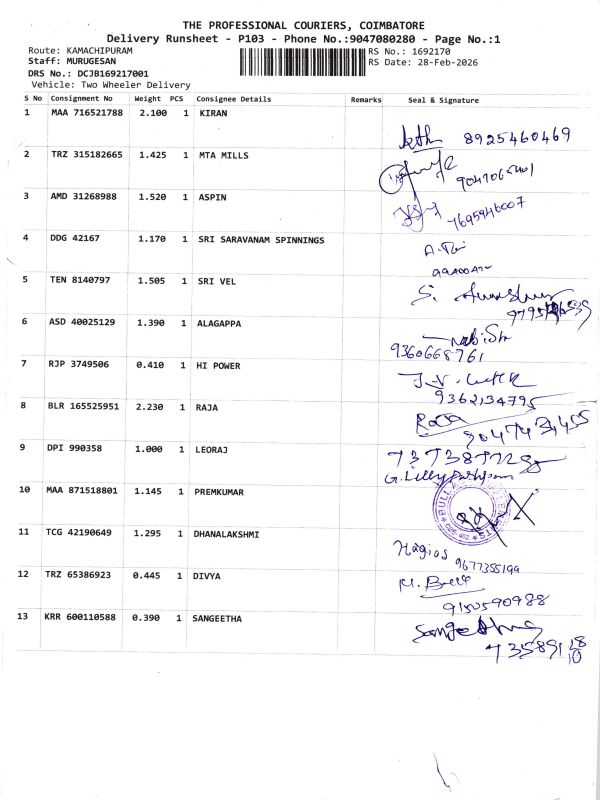 THE PROFESSIONAL COURIERS, COIMBATORE
Delivery Runsheet - P103 - Phone No.:9047080280 - Page No.:1
Route: KAMACHIPURAM
RS No.: 1692170
Staff: MURUGESAN
RS Date: 28-Feb-2026
DRS No.: DCJB169217001
Vehicle: Two Wheeler Delivery
S No Consignment No Weight PCS Consignee Details Remarks Seal & Signature
1 MAA 716521788 2.100 1 KIRAN
8925460469
2 TRZ 315182665 1.425 1 MTA MILLS
3 AMD 31268988 1.520 1 ASPIN
7695946007
4 DDG 42167 1.170 1 SRI SARAVANAM SPINNINGS
5 TEN 8140797 1.505 1 SRI VEL
6 ASD 40025129 1.390 1 ALAGAPPA
9360668761
7 RJP 3749506 0.410 1 HI POWER
9362134795
8 BLR 165525951 2.230 1 RAJA
Raja
9 DPI 990358 1.000 1 LEORAJ
10 MAA 871518801 1.145 1 PREMKUMAR
11 TCG 42190649 1.295 1 DHANALAKSHMI
12 TRZ 65386923 0.445 1 DIVYA
9150590988
13 KRR 600110588 0.390 1 SANGEETHA
Sangeetha